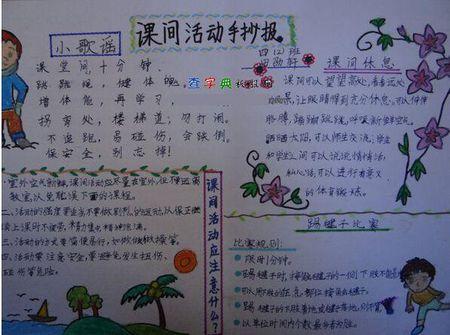 课间活动手抄报。
四(2)班
小歌谣
课堂间,十分钟。
踢踢毽,健体魄,
增体能,再学习,
拐弯处,楼梯道;勿打闹。
不追跑,易碰伤,会跌倒。
保安全,别忘掉!
查字典
课间休息
课间可以望望高处,看看远处
景,让眼睛得到充分休息,可以伸伸
胳膊,踢踢跳跳,呼吸新鲜空气,
晒晒太阳,可以师生交流;学生
和学生之间可以说说悄悄话,
的体育锻炼。
课间活动应注意什么?
室外空气新鲜,课间活动应尽量在室外,但不要远离
教室,以免耽误下面的课程。
二、活动的强度要适当,不要做剧烈的运动,以保证继
续上课时不疲劳、精力集中、精神饱满。
三、活动的方式要简便易行,如做做操等。
四、活动要注意安全,要避免发生扭伤、
碰伤等危险。
踢毽子比赛
比赛规则:
限时1分钟。
以单位时间内个数最多者为胜。